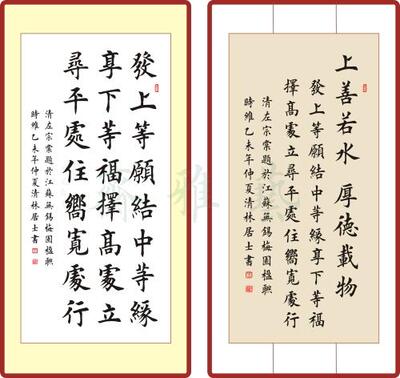 發上等願結中等緣
享下等福擇髙處立
尋平處住嚮寬處行
清左宗棠題於江蘇無錫梅園楹聯
時維乙未年仲夏清林居士書
上善若水 厚德載物
發上等願結中等緣享下等福
擇髙處立尋平處住嚮寬處行
清左宗棠題於江蘇無錫梅園楹聯
時維乙未年仲夏清林居士書
雅藝